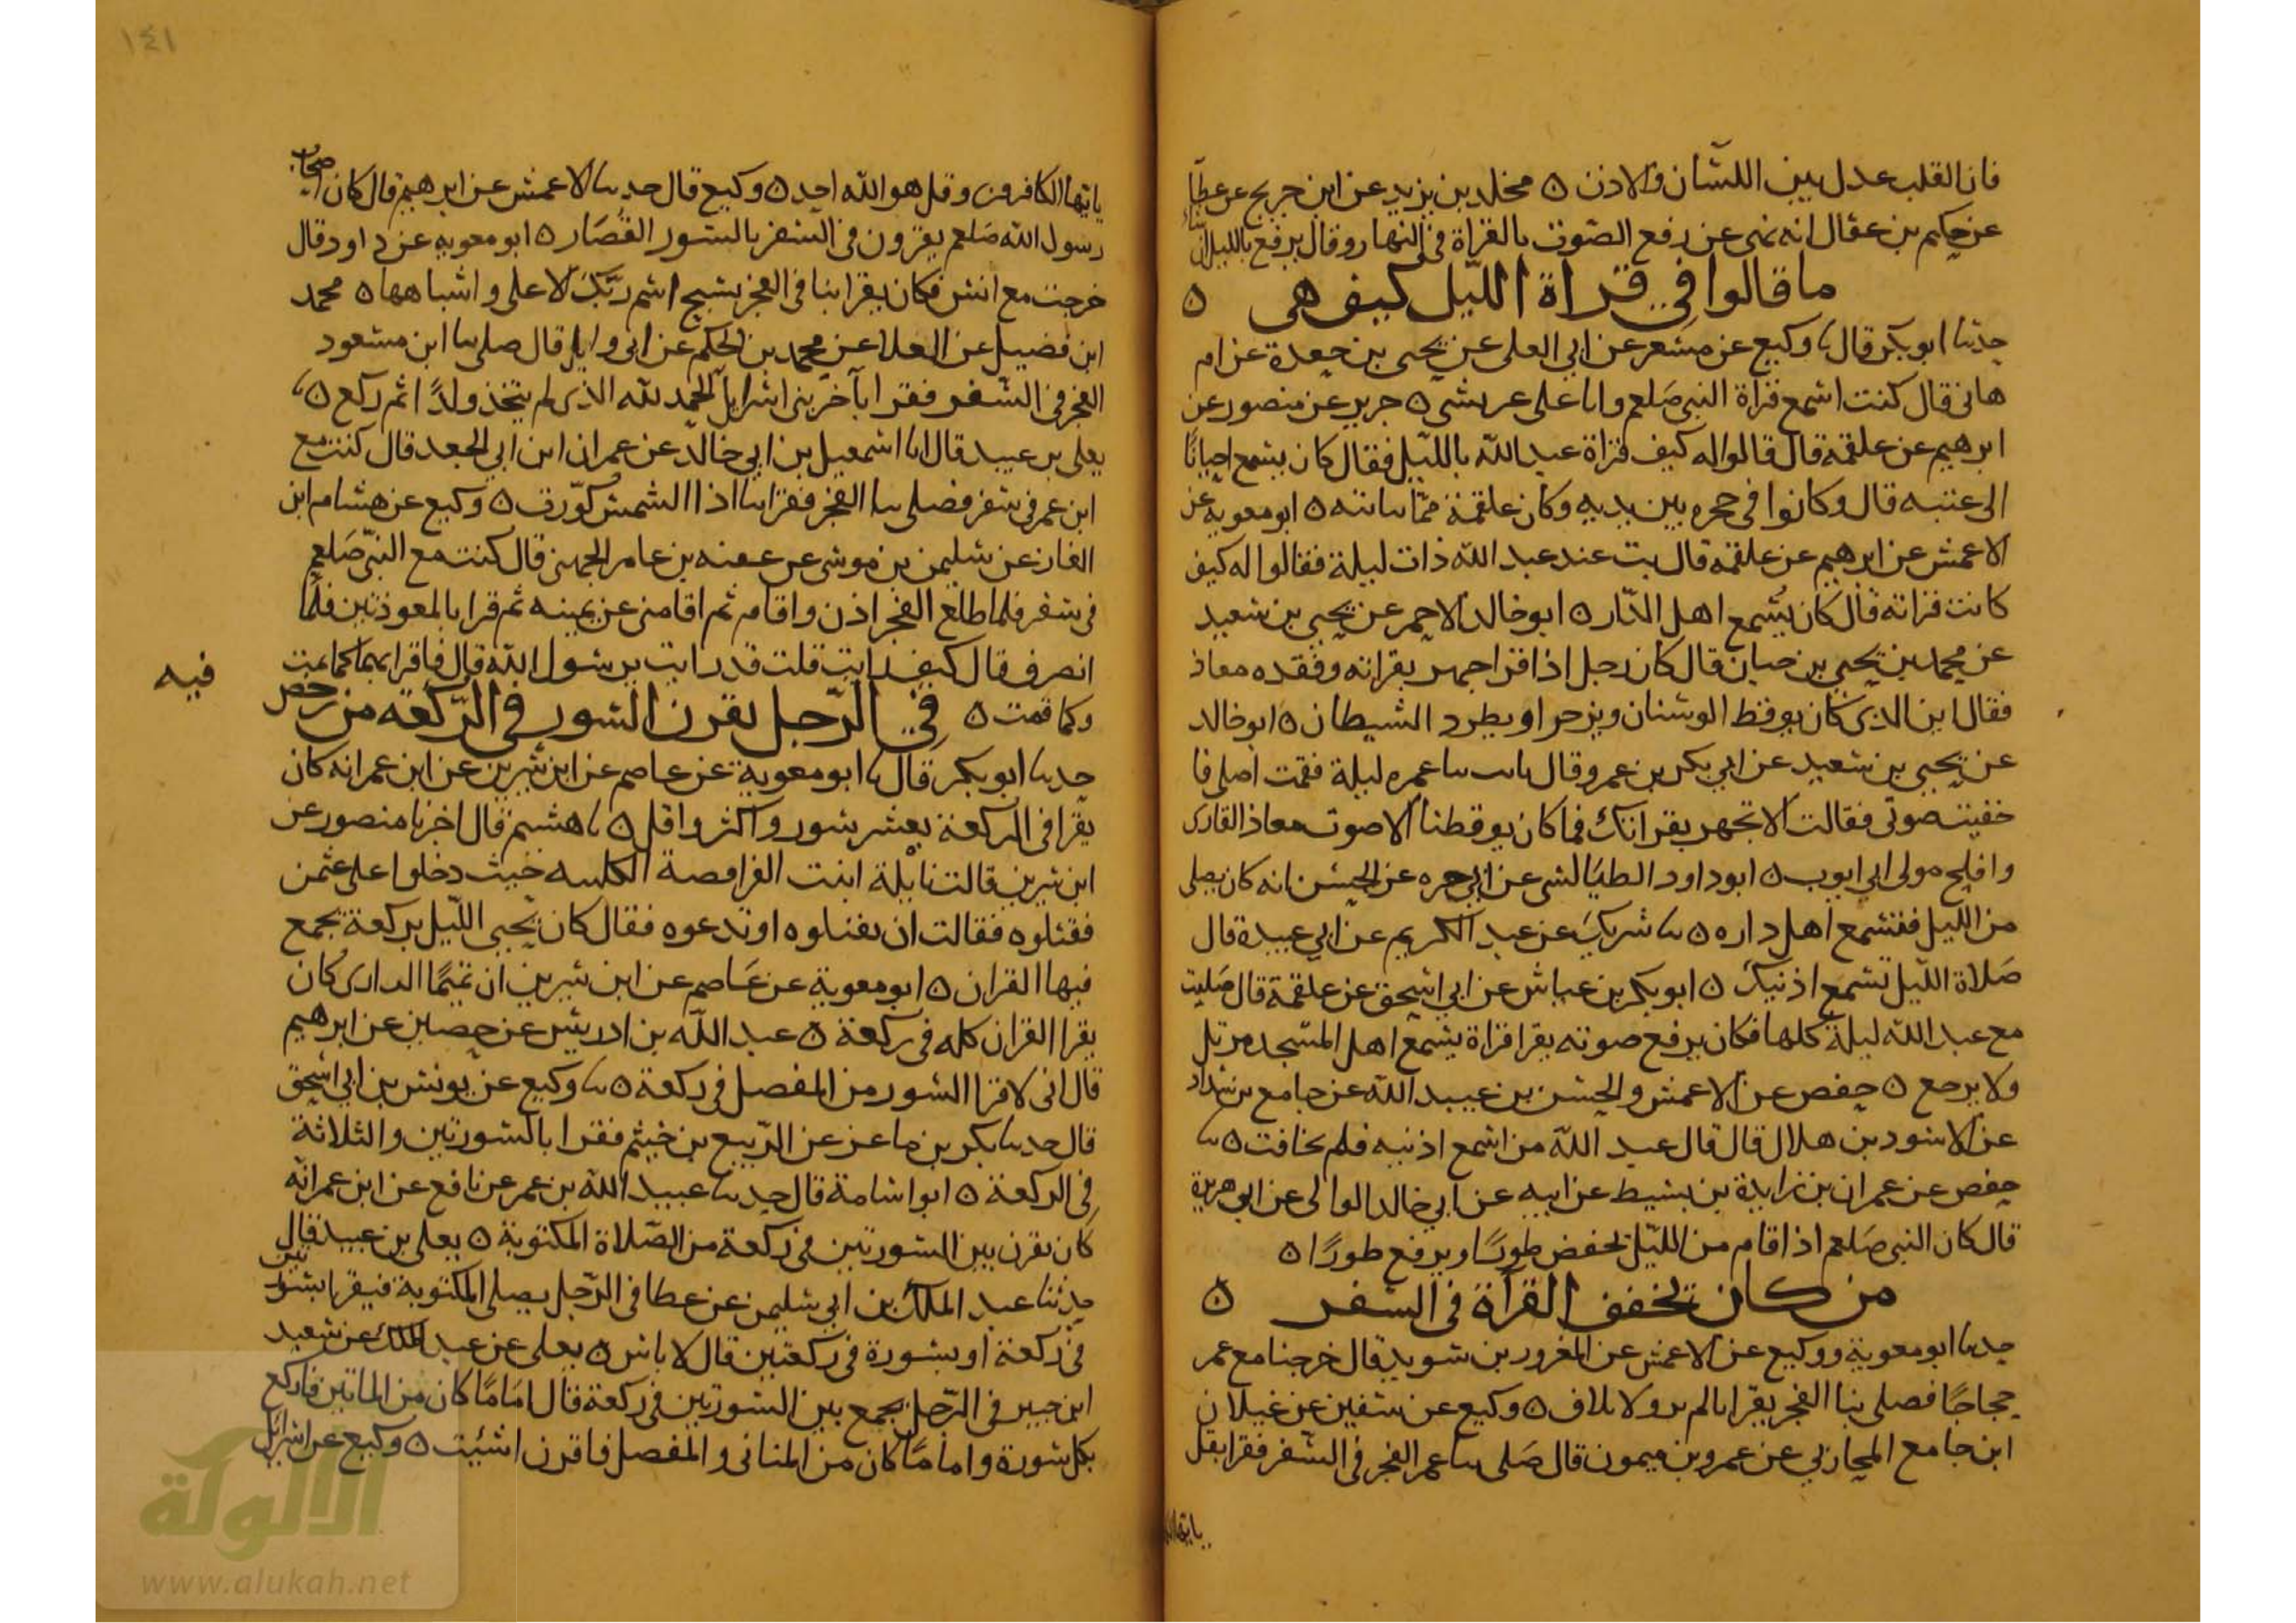 فان القلب عدل بين اللسان والاذن ه مخلد بن يزيد عن ابن جريج عن عطا
عن حكيم بن عقال انه نهى عن رفع الصوت بالقراة في النهار وقال يرفع بالليل ان شا
ما قالوا في قراة الليل كيف هي ه
حدثنا ابو بكر قال نا وكيع عن مسعر عن ابي العلى عن يحيى بن جعدة عن ام
هانى قال كنت اسمع قراة النبي صلعم وانا على عريشى ه جرير عن منصور عن
ابرهيم عن علقمة قال قالوا له كيف قراة عبد الله بالليل فقال كان يسمع احيانا
الى عتبه قال وكانوا في حجره بين يديه وكان علقمة مما بايته ه ابو معوية عن
الاعمش عن ابرهيم عن علقمه قال بت عند عبد الله ذات ليلة فقالوا له كيف
كانت قراته قال كان يُسمع اهل الدار ه ابو خالد الاحمر عن يحيى بن سعيد
عن محمد بن يحيى بن حبان قال كان رجل اذا قرا جهر بقراته وفقده معاذ
فقال اين الذي كان يوقظ الوسنان ويزجر او يطرد الشيطان ه ابو خالد
عن يحيى بن سعيد عن ابي بكر بن عمر وقال باتت بنا عمره ليلة فقمت اصلى فا
خفيت صوتى فقالت الا تجهر بقراتك فما كان يوقظنا الا صوت معاذ القارى
وافلح مولى ابي ايوب ه ابو داود الطيالسى عن ابي حره عن الحسن انه كان يصلى
من الليل فيسمع اهل داره ه نا شريك عن عبد الكريم عن ابي عبيدة قال
صلاة الليل تسمع اذنيك ه ابو بكر بن عياش عن ابي اسحق عن علقمة قال صليت
مع عبد الله ليلة كلها فكان يرفع صوته يقرا قراة يسمع اهل المسجد يرتل
ولا يرجع ه حفص عن الاعمش والحسن بن عبيد الله عن جامع بن شداد
عن الاسود بن هلال قال قال عبد الله من اسمع اذنيه فلم يخافت ه نا
حفص عن عمران بن زايدة بن نشيط عن ابيه عن ابي خالد الوالى عن ابي هريرة
قال كان النبي صلعم اذا قام من الليل يخفض طورًا ويرفع طورًا ه
من كان يخفف القراة في السفر ه
حدثنا ابو معوية ووكيع عن الاعمش عن المغرور بن سويد قال خرجنا مع عمر
حجاجًا فصلى بنا الفجر يقرا بالم تر ولايلاف ه وكيع عن سفين عن غيلان
ابن جامع المحاربي عن عمرو بن ميمون قال صلى بنا عمر الفجر في السفر فقرا بقل
يايها
١٤١
يايها الكافرون وقل هو الله احد ه وكيع قال حدثنا الاعمش عن ابرهيم قال كان اصحاب
رسول الله صلعم يقرون في السفر بالسور القصار ه ابو معويه عن داود قال
خرجت مع انس فكان يقرا بنا في الفجر بسبح اسم ربك الاعلى واشباهها ه محمد
ابن فضيل عن العلا عن محمد بن الحكم عن ابي وايل قال صلى بنا ابن مسعود
الفجر في السفر فقرا بآخر بنى اسرايل الحمد لله الذى لم يتخذ ولدًا ثم ركع ه نا
يعلى بن عبيد قال انا اسمعيل بن ابي خالد عن عمران ابن ابي الجعد قال كنت مع
ابن عمر في سفر فصلى بنا الفجر فقرا بنا اذا الشمس كورت ه وكيع عن هشام ابن
الغاز عن سليمن بن موسى عن عقبه بن عامر الجهنى قال كنت مع النبي صلعم
في سفر فلما طلع الفجر اذن واقام ثم اقامنى عن يمينه ثم قرا بالمعوذتين فلما
انصرف قال كيف رايت قلت قد رايت يرسول الله قال فاقرا بهما كلما نمت
وكلما قمت ه في الرجل يقرن السور في الركعه من رخص
فيه
حدثنا ابو بكر قال نا ابو معوية عن عاصم عن ابن سيرين عن ابن عمر انه كان
يقرا في الركعة بعشر سور واكثر واقل ه نا هشيم قال اخبرنا منصور عن
ابن سيرين قالت نايلة ابنت الفرافصة الكلبيه حيث دخلوا على عثمن
فقتلوه فقالت ان تقتلوه او تدعوه فقال كان يحيى الليل بركعة يجمع
فيها القران ه ابو معوية عن عاصم عن ابن سيرين ان تميمًا الدارى كان
يقرا القران كله في ركعة ه عبد الله بن ادريس عن حصين عن ابرهيم
قال انى لاقرا السور من المفصل في ركعة ه نا وكيع عن يونس بن ابي اسحق
قال حدثنا بكر بن ماعز عن الربيع بن خيثم فقرا بالسورتين والثلاثة
في الركعة ه ابو اسامة قال حدثنا عبيد الله بن عمر عن نافع عن ابن عمر انه
كان يقرن بين السورتين في ركعة من الصلاة المكتوبة ه يعلى بن عبيد قال
حدثنا عبد الملك بن ابي سليمن عن عطا في الرجل يصلى المكتوبة فيقرا بسورتين
في ركعة او بسورة في ركعتين قال لا باس ه يعلى عن عبد الملك عن سعيد
ابن جبير في الرجل يجمع بين السورتين في ركعة قال اما ما كان من الماتين فاركع
بكل سورة واما ما كان من المثانى والمفصل فاقرن اشئيت ه وكيع عن اسرايل
الألوكة
www.alukah.net